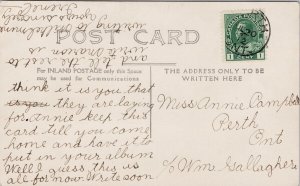 POST CARD
For INLAND POSTAGE only this Space
may be used for Communications
THE ADDRESS ONLY TO BE
WRITTEN HERE
think it is you that
is you they are laying
for. Annie keep this
card till you come
home and have it to
put in your album
Well I guess this is
all for now. Write soon
and tell the rest to
write
Miss Annie Campbell
Perth
Ont
c/o Wm. Gallagher
1 CENT 1